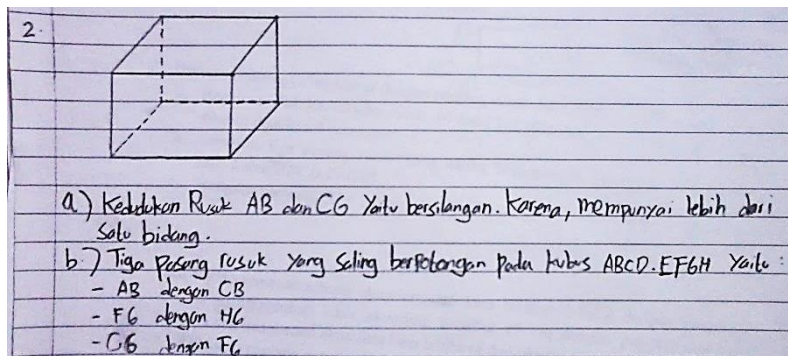 2.
a) Kedudukan Rusuk AB dan CG Yaitu bersilangan. Karena, mempunyai lebih dari
satu bidang.
b.) Tiga pasang rusuk yang saling berpotongan pada kubus ABCD.EFGH Yaitu :
- AB dengan CB
- FG dengan HG
- CG dengan FG